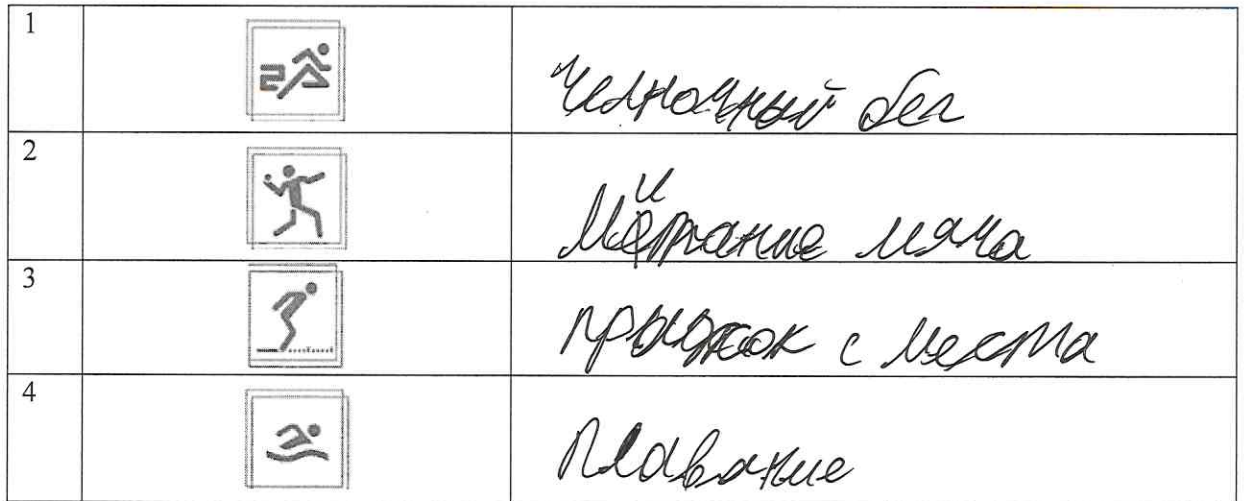 1
Челночный бег
2
Митание мяча
3
прыжок с места
4
Плавание